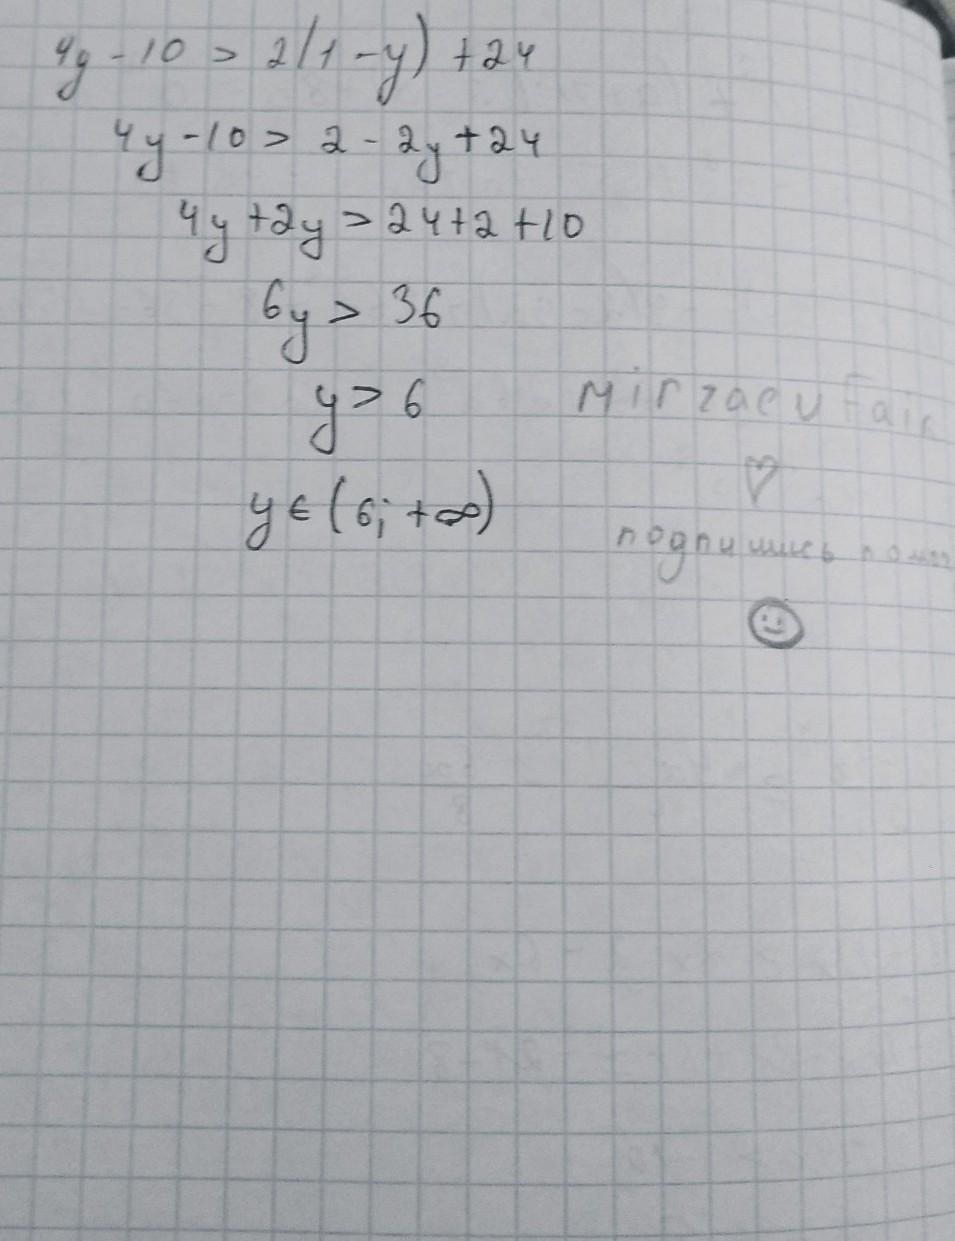 4y - 10 > 2(1 - y) + 24
4y - 10 > 2 - 2y + 24
4y + 2y > 24 + 2 + 10
6y > 36
y > 6
y ∈ (6; +∞)
подпишись